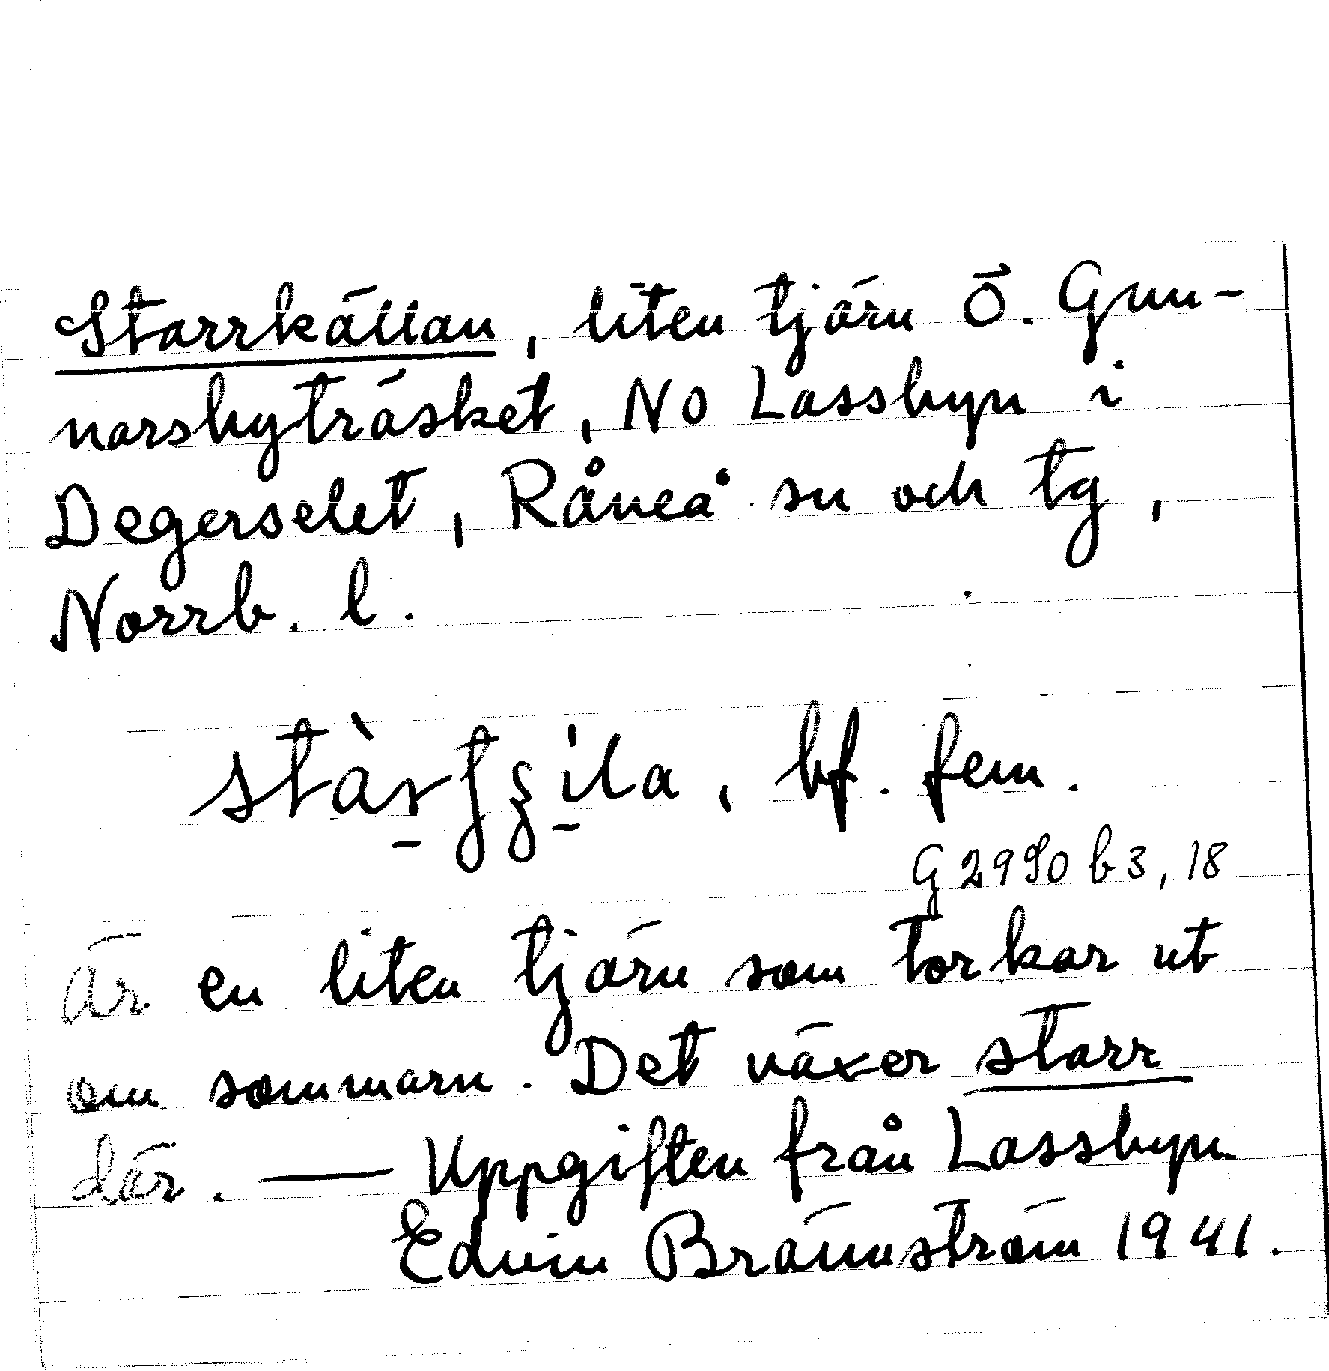 Starrkällan, liten tjärn Ö. Gun-
narsbyträsket, NO Lassbyn i
Degerselet, Råneå sn och tg,
Norrb. l.
bf. fem.
G 2990 b 3, 18
Är en liten tjärn som torkar ut
om sommarn. Det växer starr
där. — Uppgiften från Lassbyn.
Edvin Brännström 1941.